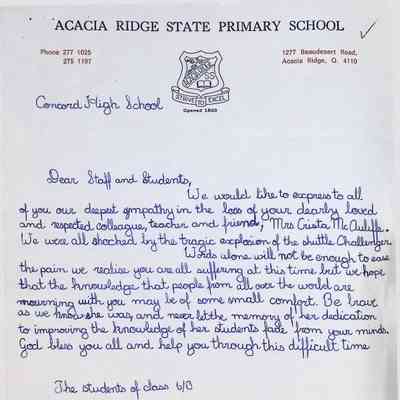 ACACIA RIDGE STATE PRIMARY SCHOOL
Phone 277 1025
275 1197
1277 Beaudesert Road,
Acacia Ridge, Q. 4110
STRIVE TO EXCEL
Opened 1869
Concord High School
Dear Staff and Students,
We would like to express to all
of you our deepest sympathy in the loss of your dearly loved
and respected colleague, teacher and friend, Mrs Crista McCauliffe.
We were all shocked by the tragic explosion of the shuttle Challenger.
Words alone will not be enough to ease
the pain we realise you are all suffering at this time but we hope
that the knowledge that people from all over the world are
mourning with you may be of some small comfort. Be brave
as we know she was, and never let the memory of her dedication
to improving the knowledge of her students fade from your minds.
God bless you all and help you through this difficult time
The students of class 6/B